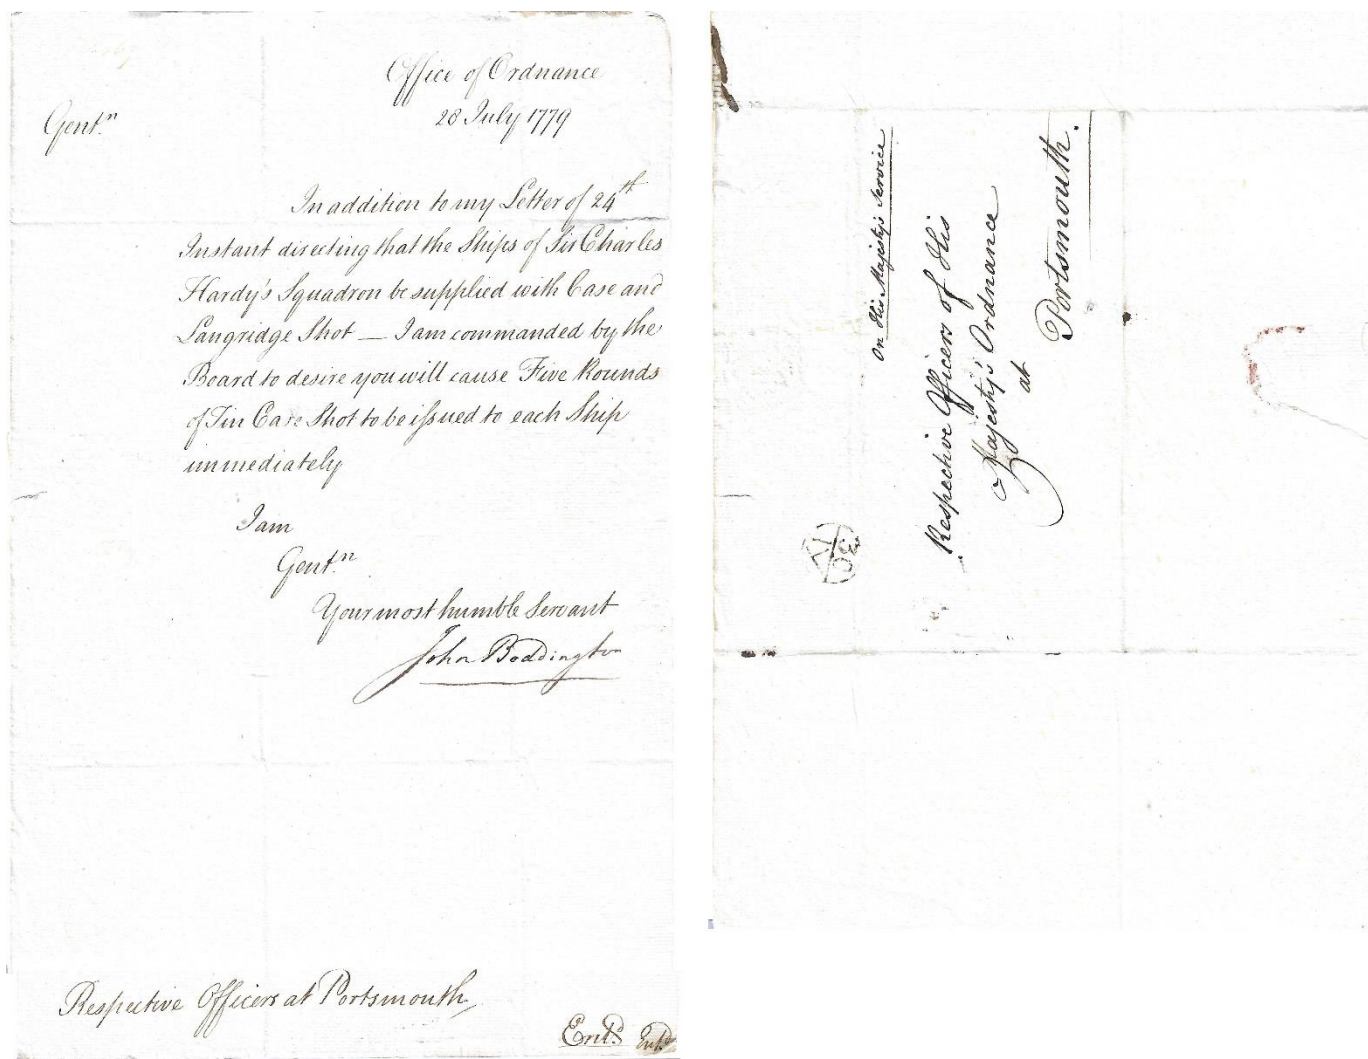 Office of Ordnance
28 July 1779
Gent.n
In addition to my Letter of 24th
Instant directing that the Ships of Sir Charles
Hardy's Squadron be supplied with Case and
Langridge Shot — I am commanded by the
Board to desire you will cause Five Rounds
of Tin Case Shot to be issued to each Ship
immediately
I am
Gent.n
Your most humble Servant
John Boddington
Respective Officers at Portsmouth
Ent.d
On His Majesty's Service
Respective Officers of His
Majesty's Ordnance
at
Portsmouth.
30
IY